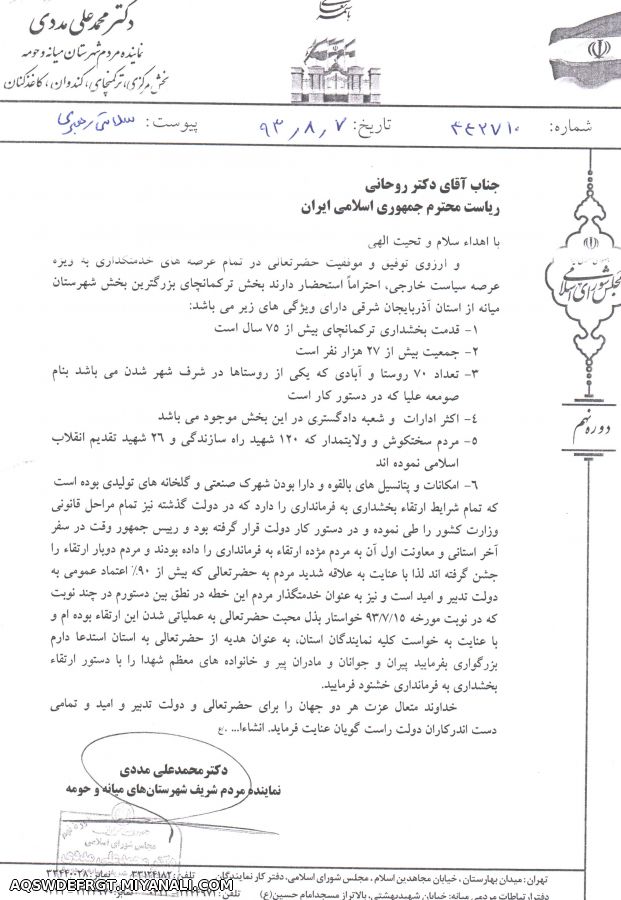 باسمه تعالی
دکتر محمدعلی مددی
نماینده مردم شهرستان میانه و حومه
بخش مرکزی، ترکمنچای، کندوان، کاغذکنان
شماره: ۴۴۲۷۱۰
تاریخ: ۹۳٫۸٫۷
پیوست:
جناب آقای دکتر روحانی
ریاست محترم جمهوری اسلامی ایران
با اهداء سلام و تحیت الهی
و ارزوی توفیق و موفقیت حضرتعالی در تمام عرصه های خدمتگذاری به ویژه
عرصه سیاست خارجی، احتراماً استحضار دارند بخش ترکمانچای بزرگترین بخش شهرستان
میانه از استان آذربایجان شرقی دارای ویژگی های زیر می باشد:
۱- قدمت بخشداری ترکمانچای بیش از ۷۵ سال است
۲- جمعیت بیش از ۲۷ هزار نفر است
۳- تعداد ۷۰ روستا و آبادی که یکی از روستاها در شرف شهر شدن می باشد بنام
صومعه علیا که در دستور کار است
۴- اکثر ادارات و شعبه دادگستری در این بخش موجود می باشد
۵- مردم سختکوش و ولایتمدار که ۱۲۰ شهید راه سازندگی و ۲۶ شهید تقدیم انقلاب
اسلامی نموده اند
۶- امکانات و پتانسیل های بالقوه و دارا بودن شهرک صنعتی و گلخانه های تولیدی بوده است
که تمام شرایط ارتقاء بخشداری به فرمانداری را دارد که در دولت گذشته نیز تمام مراحل قانونی
وزارت کشور را طی نموده و در دستور کار دولت قرار گرفته بود و رییس جمهور وقت در سفر
آخر استانی و معاونت اول آن به مردم مژده ارتقاء به فرمانداری را داده بودند و مردم دوبار ارتقاء را
جشن گرفته اند لذا با عنایت به علاقه شدید مردم به حضرتعالی که بیش از ۹۰٪ اعتماد عمومی به
دولت تدبیر و امید است و نیز به عنوان خدمتگذار مردم این خطه در نطق بین دستورم در چند نوبت
که در نوبت مورخه ۹۳/۷/۱۵ خواستار بذل محبت حضرتعالی به عملیاتی شدن این ارتقاء بوده ام و
با عنایت به خواست کلیه نمایندگان استان، به عنوان هدیه از حضرتعالی به استان استدعا دارم
بزرگواری بفرمایید پیران و جوانان و مادران پیر و خانواده های معظم شهدا را با دستور ارتقاء
بخشداری به فرمانداری خشنود فرمایید.
خداوند متعال عزت هر دو جهان را برای حضرتعالی و دولت تدبیر و امید و تمامی
دست اندرکاران دولت راست گویان عنایت فرماید. انشاءا... .ع
دکترمحمدعلی مددی
نماینده مردم شریف شهرستان‌های میانه و حومه
مجلس شورای اسلامی
دوره نهم
مجلس شورای اسلامی
تهران: میدان بهارستان، خیابان مجاهدین اسلام، مجلس شورای اسلامی، دفتر کار نمایندگان تلفن: ۳۳۱۲۴۱۸۲ نمابر: ۳۳۴۴۰۰۲۸
دفتر ارتباطات مردمی میانه: خیابان شهیدبهشتی، بالاتر از مسجد امام حسین(ع) تلفن:
AQSWDEFRGT.MIYANALI.COM